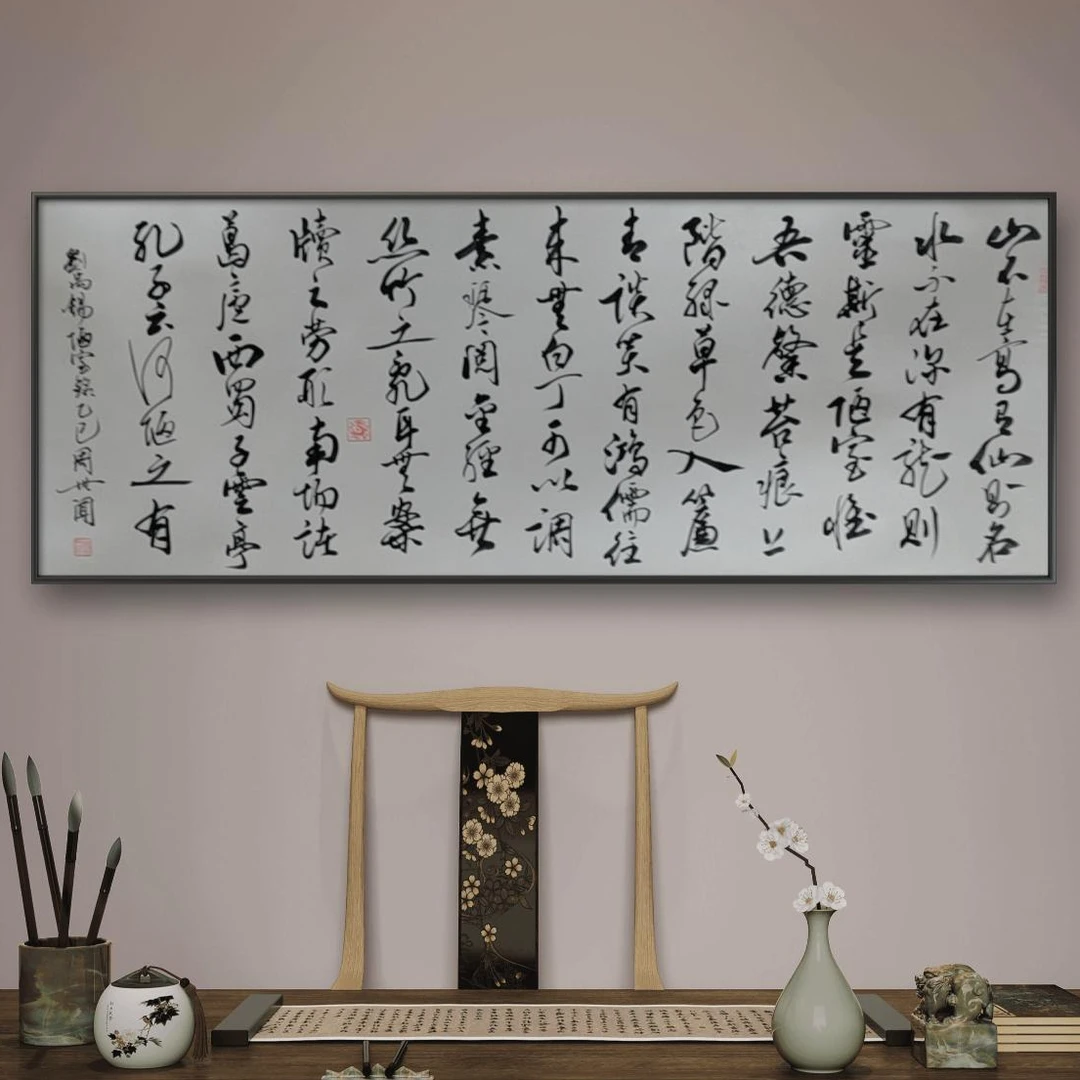 山不在高有仙則名
水不在深有龍則
靈斯是陋室惟
吾德馨苔痕上
階綠草色入簾
青談笑有鴻儒往
來無白丁可以調
素琴閱金經無
絲竹之亂耳無案
牘之勞形南陽諸
葛廬西蜀子雲亭
孔子云何陋之有
劉禹錫陋室銘乙巳周世聞